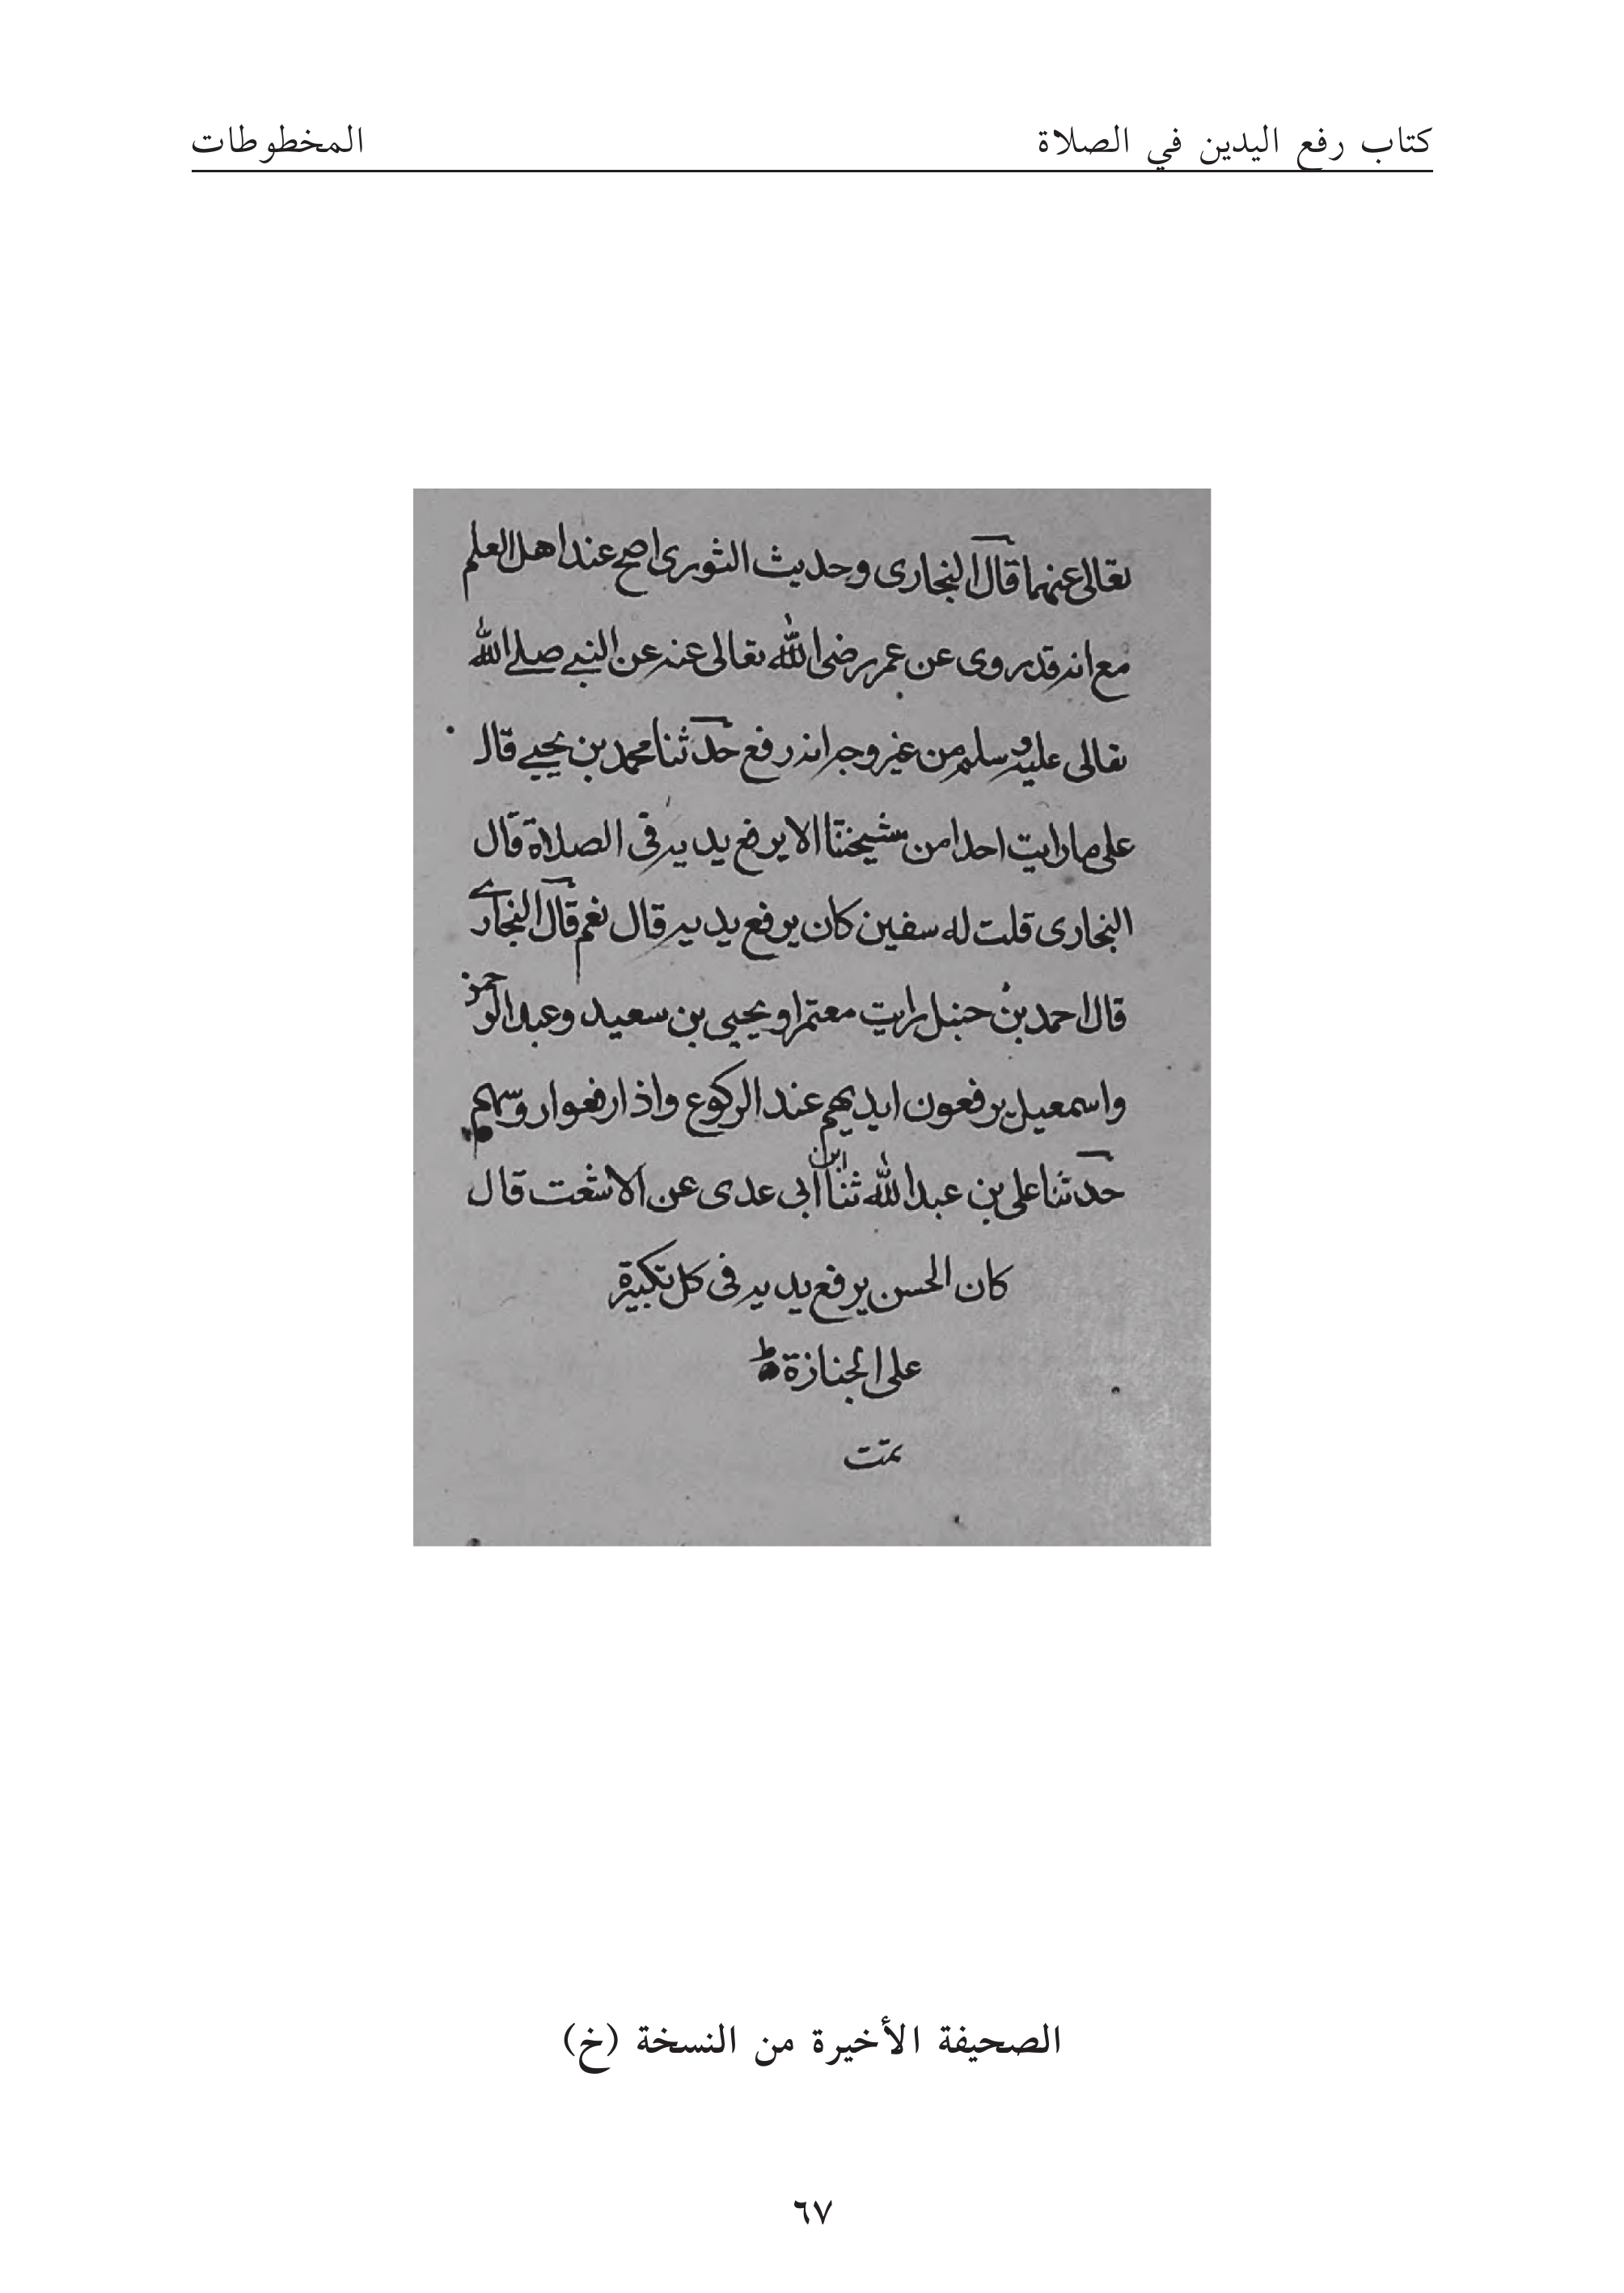 كتاب رفع اليدين في الصلاة
المخطوطات
تعالى عنهما قال البخارى وحديث الثورى اصح عند اهل العلم
مع انه قد روى عن عمر رضى الله تعالى عنه عن النبي صلى الله
تعالى عليه وسلم من غير وجه انه رفع حدثنا محمد بن يحيى قال
على ما رايت احدا من مشيختنا الا يرفع يديه فى الصلاة قال
البخارى قلت له سفين كان يرفع يديه قال نعم قال البخارى
قال احمد بن حنبل رايت معتمرا ويحيى بن سعيد وعبد الرحمن
واسمعيل يرفعون ايديهم عند الركوع واذا رفعوا روسهم
حدثنا على بن عبد الله ثنا ابن ابى عدى عن الاشعت قال
كان الحسن يرفع يديه فى كل تكبيرة
على الجنازة
تمت
الصحيفة الأخيرة من النسخة (خ)
٦٧